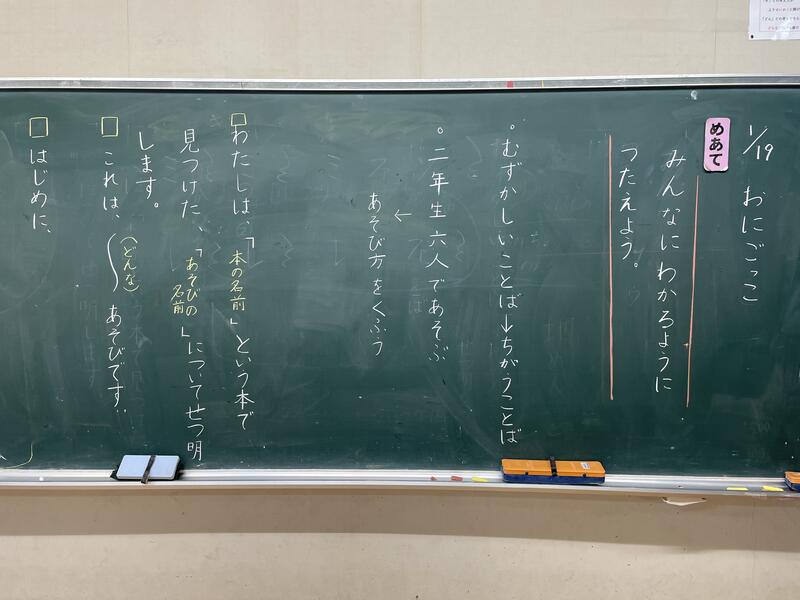 1/19 おにごっこ
めあて
みんなにわかるように
つたえよう。
。むずかしいことば→ちがうことば
。二年生六人であそぶ
↓
あそび方をくふう
□わたしは、「本の名前」という本で
見つけた、「あそびの名前」についてせつ明
します。
□これは、(どんな)あそびです。
□はじめに、